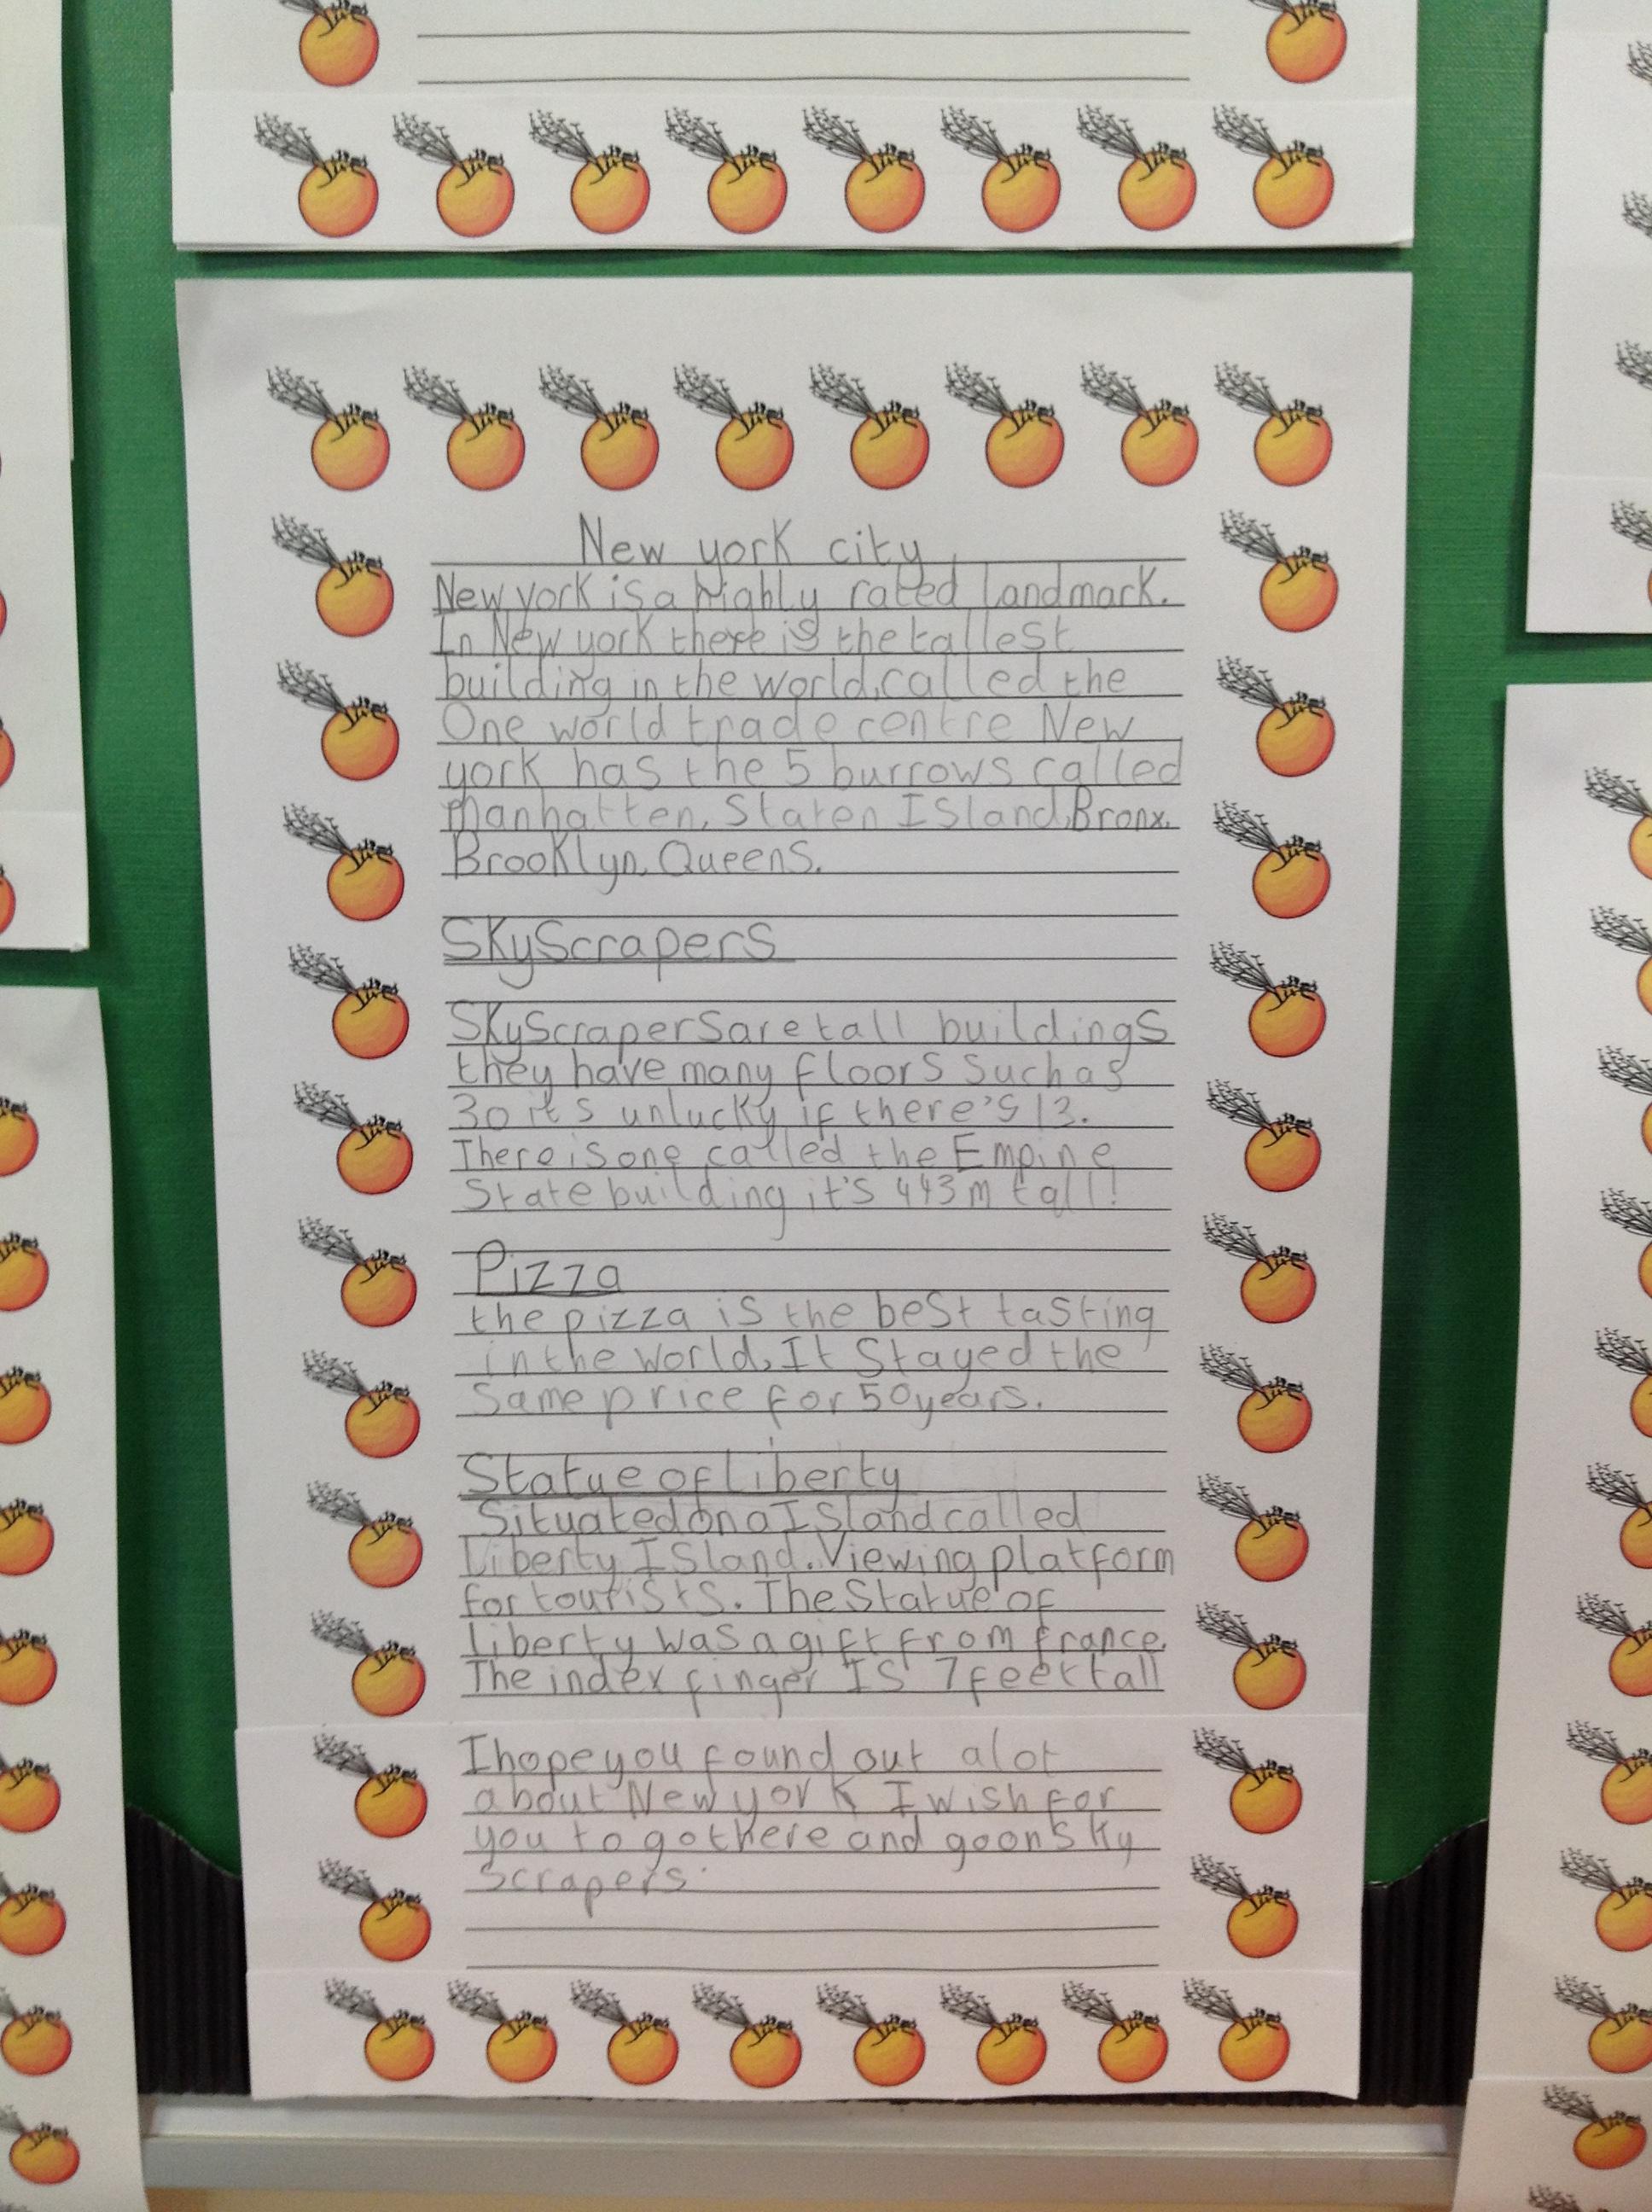 New york city
New york is a highly rated landmark.
In New york there is the tallest
building in the world, called the
One world trade centre New
york has the 5 burrows called
Manhatten, Staten Island, Bronx,
Brooklyn, Queens.
Skyscrapers
Skyscrapers are tall buildings
they have many floors such as
30 it's unlucky if there's 13.
There is one called the Empire
State building it's 443m tall!
Pizza
the pizza is the best tasting
in the world, It Stayed the
Same price for 50 years.
Statue of Liberty
Situated on a Island called
Liberty Island. Viewing platform
for tourists. The Statue of
liberty was a gift from france.
The index finger Is 7 feet tall
I hope you found out alot
about New york I wish for
you to go there and go on sky
scrapers.